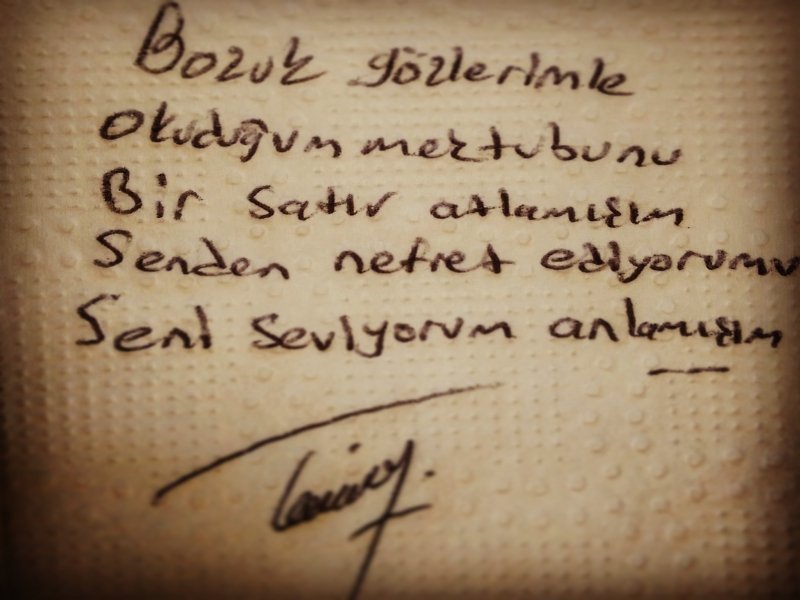 Bozuk gözlerimle
Okuduğum mektubunu
Bir satır atlamışım
Senden nefret ediyorumu
Seni seviyorum anlamışım